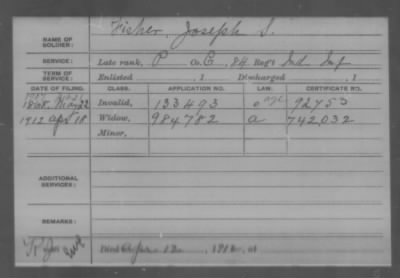 Fisher, Joseph S.
NAME OF SOLDIER:
SERVICE: Late rank, P Co. C, 84 Reg't Ind Inf
TERM OF SERVICE: Enlisted , 1 Discharged , 1
DATE OF FILING. CLASS. APPLICATION NO. LAW. CERTIFICATE NO.
May 22 Invalid, 133493 92753
1912 Apr 18 Widow, 984782 a 742032
Minor,
ADDITIONAL SERVICES:
REMARKS:
Died Apr 12, 1912, at